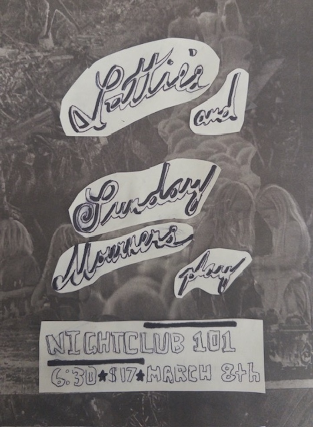 Lottie's
and
Sunday
Mourners
play
NIGHTCLUB 101
6:30★$17★MARCH 8th